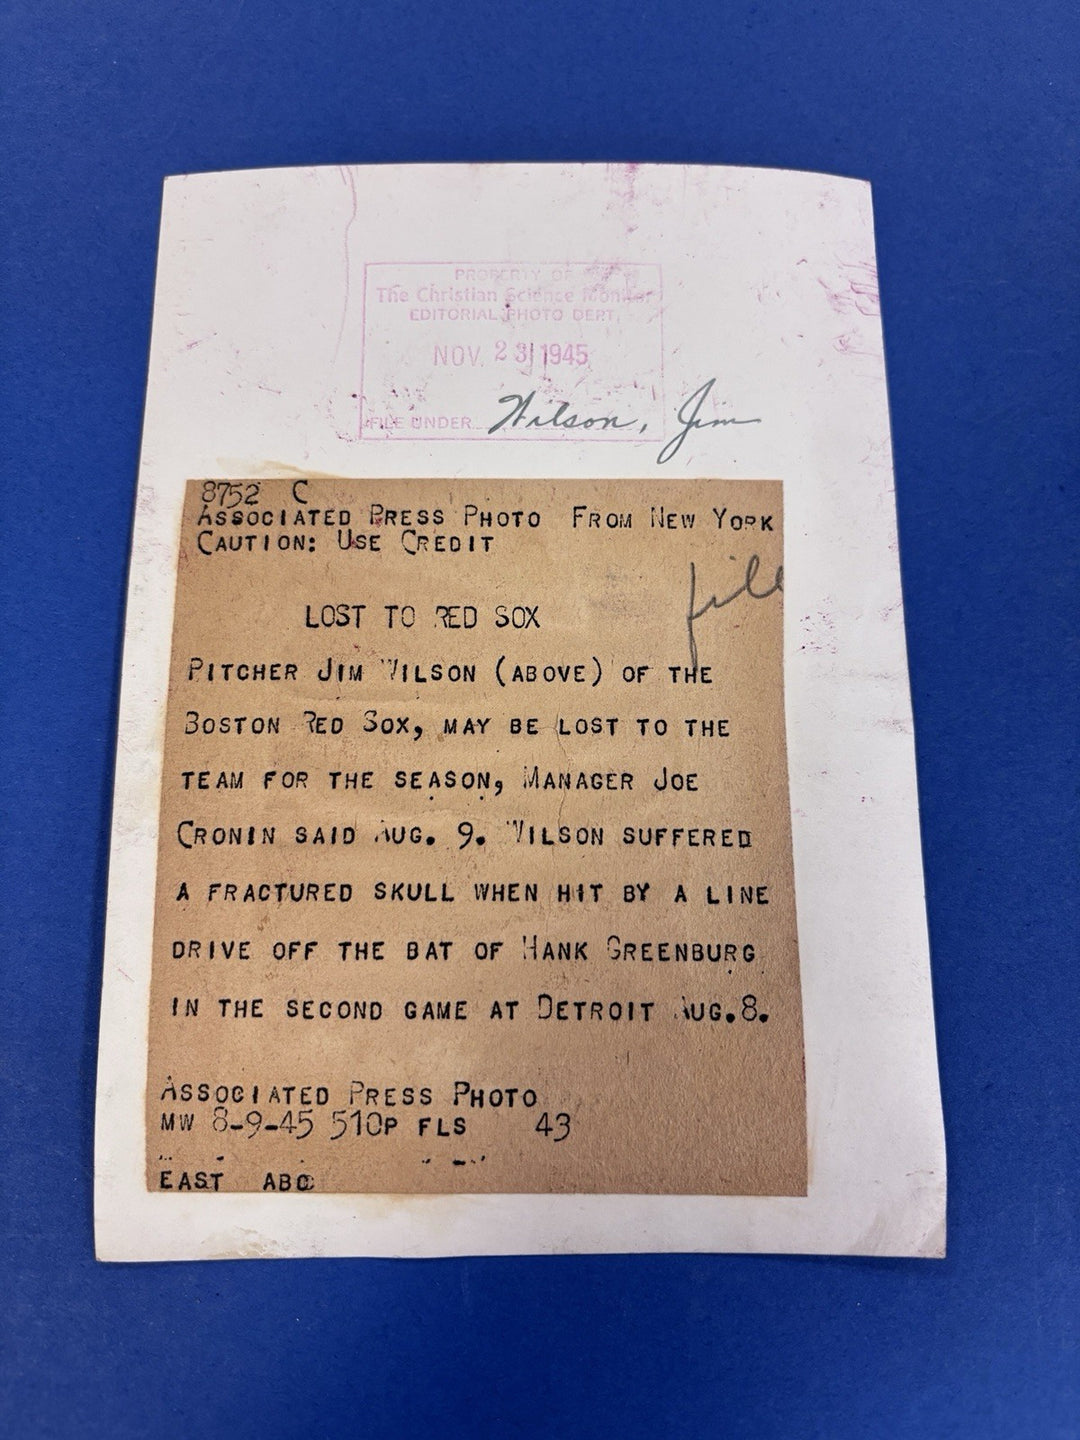 PROPERTY OF
The Christian Science Monitor
EDITORIAL PHOTO DEPT.
NOV. 23 1945
FILE UNDER Wilson, Jim
8752 C
ASSOCIATED PRESS PHOTO FROM NEW YORK
CAUTION: USE CREDIT
file
LOST TO RED SOX
PITCHER JIM WILSON (ABOVE) OF THE
BOSTON RED SOX, MAY BE LOST TO THE
TEAM FOR THE SEASON, MANAGER JOE
CRONIN SAID AUG. 9. WILSON SUFFERED
A FRACTURED SKULL WHEN HIT BY A LINE
DRIVE OFF THE BAT OF HANK GREENBURG
IN THE SECOND GAME AT DETROIT AUG.8.
ASSOCIATED PRESS PHOTO
MW 8-9-45 510P FLS 43
EAST ABC